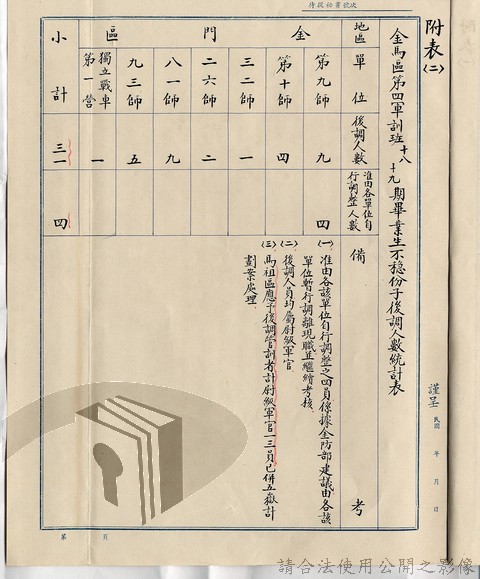 附表(二)
金馬區第四軍訓班十八十九期畢業生不穩份子後調人數統計表
謹呈
民國 年 月 日
地區
單位
後調人數
准由各單位自行調整人數
備考
金門區
第九師 九 四
第十師 四
三二師 一
二六師 二
八一師 九
九三師 五
獨立戰車第一營 一
小計 三一 四
(一)准由各該單位自行調整之四員係據金防部建議由各該
單位暫行調離現職並繼續考核
(二)後調人員均屬尉級軍官
(三)馬祖區應予後調管訓者計尉級軍官一三員已併五嶽計
劃案處理
第 頁
請合法使用公開之影像